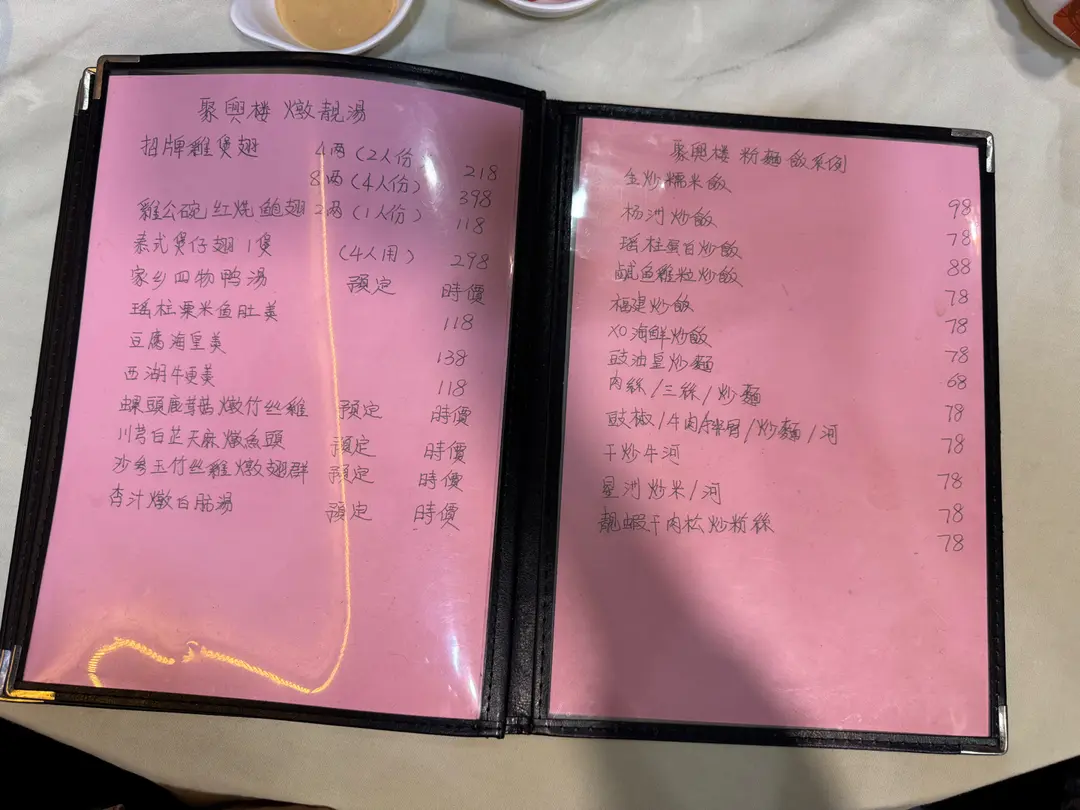 聚興楼 燉靚湯
招牌雞煲翅 4两(2人份 218
8两(4人份) 398
雞公碗红烧鲍翅 2两(1人份) 118
泰式煲仔翅 1煲 (4人用) 298
家乡四物鸭湯 預定 時價
瑶柱粟米鱼肚羹 118
豆腐海皇羹 138
西湖牛羹 118
螺頭鹿茸菇燉竹丝雞 預定 時價
川芎白芷天麻燉魚頭 預定 時價
沙参玉竹丝雞燉翅群 預定 時價
杏汁燉白肺湯 預定 時價
聚興楼 粉麵飯系例
生炒糯米飯 98
杨洲炒飯 78
瑶柱蛋白炒飯 88
鹹鱼雞粒炒飯 78
福建炒飯 78
XO海鲜炒飯 78
豉油皇炒麵 68
肉絲/三絲/炒麵 78
豉椒/牛肉/骨/炒麵/河 78
干炒牛河 78
星洲炒米/河 78
靚蝦干肉松炒粉絲 78